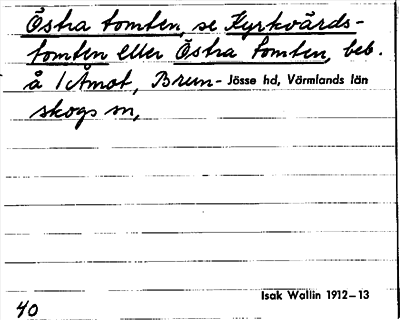 Östra tomten, se Kyrkvärds-
tomten eller Östra tomten, beb.
å 1 Åmot, Brun- Jösse hd, Värmlands län
skogs sn,
Isak Wallin 1912–13
40